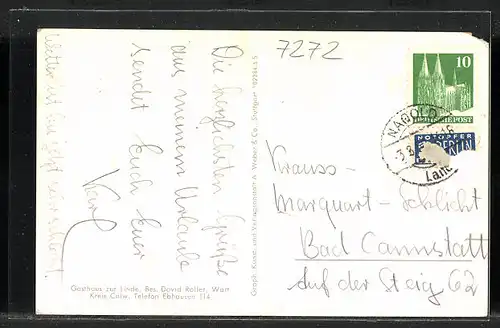 7272
10
DEUTSCHE POST
NOTOPFER
BERLIN
NAGOLD
Land
Die herzlichsten Grüße
aus meinem Urlaube
sendet Euch Euer
Karl
Wetter ist bis jetzt
Krauss-
Marquart-Schlicht
Bad Cannstatt
Auf der Steig 62
Gasthaus zur Linde, Bes. David Roller, Wart
Kreis Calw, Telefon Ebhausen 214
Graph. Kunst- und Verlagsanstalt A. Weber & Co., Stuttgart